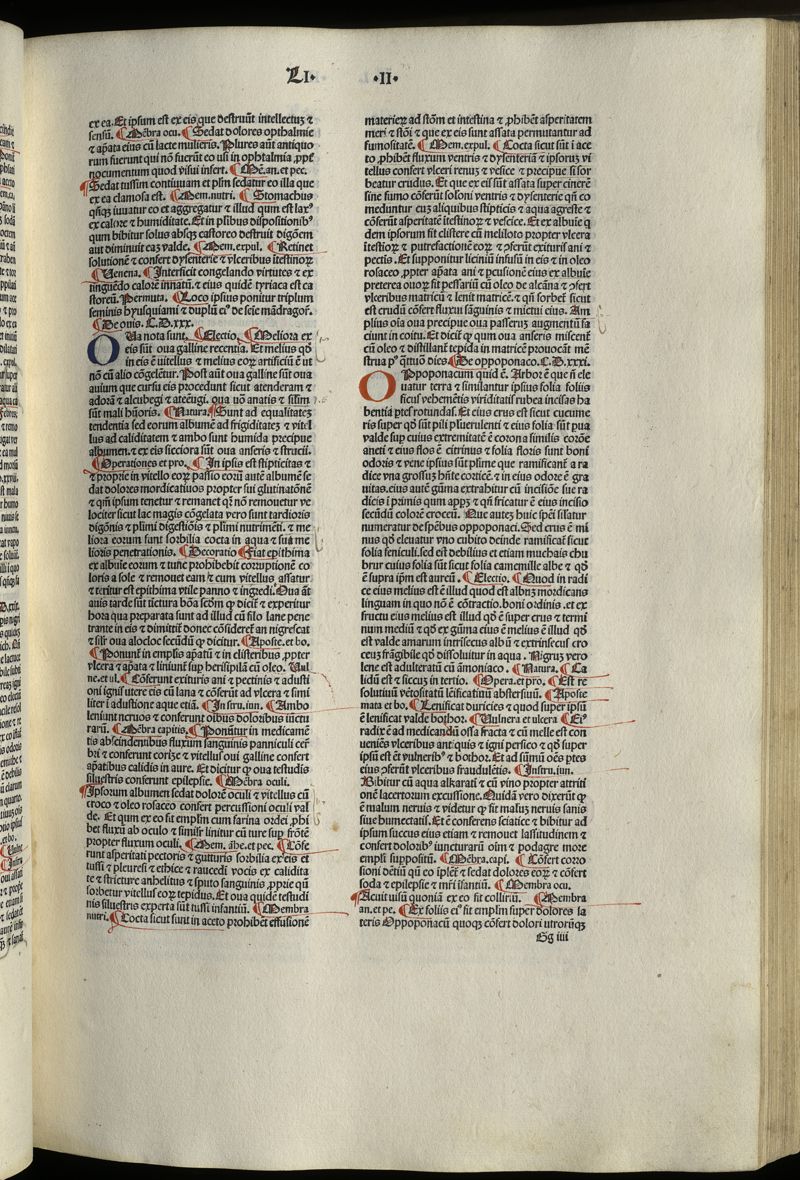 LI· ·II·
ex ea. Et ipsum est ex eis que destruūt intellectuȝ ⁊
sensū. ¶ Mēbra ocu. ¶ Sedat dolores opthalmie
⁊ aƥata eius cū lacte mulieris. Plures aūt antiquo
rum fuerunt qui nō fuerūt eo usi in ophtalmia ꝓpt̄
nocumentum quod visui infert. ¶ Mē. an. et pec.
¶ Sedat tussim continuam et plm̄ sedatur eo illa que
ex ea clamosa est. ¶ Mem. nutri. ¶ Stomachus
qn̄qȝ iuuatur eo et aggregatur ⁊ illud qum est lax⁹
ex calore ⁊ humiditate. Et in plībus dispositionib⁹
qum bibitur solus absqȝ castoreo destruit digōem
aut diminuit eaȝ valde. ¶ Mem. expul. ¶ Retinet
solutionē ⁊ confert dysenterie ⁊ vlceribus ītestinoꝝ
¶ Venena. ¶ Interficit congelando virtutes ⁊ ex
tinguēdo calorē innatū. ⁊ eius quidē tyriaca est ca
storeū. Permuta. ¶ Loco ipsius ponitur triplum
seminis hyusquiami ⁊ duplū ei⁹ de seīe mādragoꝶ.
¶ De ouis. C. D.xxx.
OVa nota sunt. ¶ Electio. ¶ Meliora ex
eis sūt oua galline recentia. Et melius qd̄
in eis ē uitellus ⁊ melius eoꝝ artificiū ē ut
nō cū alio cōgeletur. Post aūt oua galline sūt oua
auium que cursu eis procedunt sicut atenderam ⁊
adorā ⁊ alcubegi ⁊ ateēugi. qua uō anatis ⁊ silim̄
sūt mali hūoris. ¶ Natura. ¶ Sunt ad equalitateȝ
tendentia sed eorum albumē ad frigiditateȝ ⁊ vitel
lus ad caliditatem ⁊ ambo sunt humida precipue
albumen. ⁊ ex eis sicciora sūt oua anseris ⁊ strucii.
¶ Operationes et pro. ¶ In ipsis est stipticitas ⁊
⁊ proprie in vitello eoꝝ passio eorū autē albumē se
dat dolores mordicatiuos propter sui glutinatōnē
⁊ qm̄ ipsum tenetur ⁊ remanet qꝛ nō remouetur ve
lociter sicut lac magis cōgelata vero sunt tardioris
digōnis ⁊ plīmi digestiōis ⁊ plīmi nutrimēti. ⁊ me
liora eorum sunt sorbilia cocta in aqua ⁊ sūt me
lioris penetrationis. ¶ Decoratio ¶ Fiat epithima
ex albuīe eorum ⁊ tunc prohibebit corruptionē co
loris a sole ⁊ remouet eam ⁊ cum vitellus assatur
⁊ teritur est epithima vtile panno ⁊ ingredi. Oua aūt
auis tarde sūt tictura bōa scdm̄ qȝ dicit̄ ⁊ experitur
hora qua preparata sunt ad illud cū filo lane pene
trante in eis ⁊ dimittit̄ donec cōsideret̄ an nigrescat
⁊ sil̄r oua alocloc secūdū qȝ dicitur. ¶ Aposte. et bo.
¶ Ponunt̄ in emplis aƥatū ⁊ in clisteribus ꝓpter
vlcera ⁊ aƥata ⁊ liniunt̄ sup herisipilā cū oleo. Vul
ne. et ul. ¶ Cōferunt exituris ani ⁊ pectinis ⁊ adusti
oni ignis utere eis cū lana ⁊ cōferūt ad vlcera ⁊ simi
liter ī adustione aque etiā. ¶ In stru. iun. ¶ Ambo
leniunt neruos ⁊ conferunt oībus doloribus iūctu
rarū. ¶ Mēbra capitis. ¶ Ponūtur in medicamē
tis abscindentibus fluxum sanguinis panniculi cere
bri ⁊ conferunt corize ⁊ vitellus oui galline confert
aƥatibus calidis in aure. Et dicitur qȝ oua testudis
siluestris conferunt epilepsie. ¶ Mēbra oculi.
¶ Ipsorum albumen sedat dolorē oculi ⁊ vitellus cū
croco ⁊ oleo rosaceo confert percussioni oculi val
de. Et qum ex eo fit emplm̄ cum farina ordei ꝓhi
bet fluxū ab oculo ⁊ simil̄r linitur cū ture sup frōtē
propter fluxum oculi. ¶ Mem. āhe. et pec. ¶ Cōfe
runt asperitati pectoris ⁊ gutturis sorbilia ex eis et
tussi ⁊ pleuresi ⁊ ethice ⁊ raucedi vocis ex calidita
te ⁊ stricture anhelitus ⁊ sputo sanguinis ꝓprie qn̄
sorbetur vitellus eoꝝ tepidus. Et oua quidē testudi
nis siluestris experta sūt tussi infantiū. ¶ Membra
nutri. ¶ Cocta sicut sunt in aceto prohibēt effusionē
materieꝝ ad stōm et intestina ⁊ ꝓhibēt asperitatem
meri ⁊ stōi ⁊ que ex eis sunt assata permutantur ad
fumositatē. ¶ Mem. expul. ¶ Cocta sicut sūt ī ace
to ꝓhibēt fluxum ventris ⁊ dysenteriā ⁊ ipsoruȝ vi
tellus confert vlceri renuȝ ⁊ vesice ⁊ precipue si sor
beatur crudus. Et que ex eis sūt assata super cinerē
sine fumo cōferūt solōni ventris ⁊ dysenterie qn̄ co
meduntur cuȝ aliquibus stipticis ⁊ aqua agreste ⁊
cōferūt asperitatē ītestinoꝝ ⁊ vesice. Et ex albuīe q
dem ipsorum fit clistere cū meliloto propter vlcera
ītestioꝝ ⁊ putrefactionē eoꝝ ⁊ ꝯferūt exituris ani ⁊
pectis. Et supponitur liciniū infusū in eis ⁊ in oleo
rosaceo ꝓpter aƥata ani ⁊ ꝑcusionē eius ex albuīe
preterea ouoꝝ fit pessariū cū oleo de alcāna ⁊ ꝯfert
vlceribus matricū ⁊ lenit matricē. ⁊ qn̄ sorbet̄ sicut
est crudū cōfert fluxui sāguinis ⁊ mictui eius. Am
plius oīa oua precipue oua passeruȝ augmentū fa
ciunt in coitu. Et dicit̄ qȝ qum oua anseris miscent̄
cū oleo ⁊ distillant̄ tepida in matricē prouocāt mē
strua p⁹ q̄ttuor dies. ¶ De oppoponaco. C. D.xxxi.
OPpoponacum quid ē. Arbor ē que n̄ ele
uatur terra ⁊ similantur ipsius folia foliis
ficus vehemētis viriditatis rubea incisas ha
bentia ptes rotundas. Et eius crus est sicut cucume
ris super qd̄ sūt pili pluerulenti ⁊ eius folia sūt pua
valde sup cuius extremitatē ē corona similis coronē
aneti ⁊ eius flos ē citrinus ⁊ folia floris sunt boni
odoris ⁊ vene ipsius sūt plīme que ramificant̄ a ra
dice vna grossuȝ hn̄te corticē ⁊ in eius odore ē gra
uitas. eius autē gūma extrahitur cū incisiōe fiūt ra
dicis ī primis qum appȝ ⁊ qn̄ fricatur ē eius incisio
secūdū colorē croceū. Que auteȝ huic spēi silatur
numeratur de spēbus oppoponaci. Sed crus ē mi
nus qȝ eleuatur vno cubito deinde ramificāt̄ sicut
folia feniculi. sed est debilius et etiam muchais chu
brur cuius folia sūt sicut folia camomille albe ⁊ qd̄
ē supra ip̄m est aureū. ¶ Electio. ¶ Quod in radi
ce eius melius est ē illud quod est albuȝ mordicans
linguam in quo nō ē cōtractio. boni ordinis. et ex
fructu eius melius est illud qd̄ ē super crus ⁊ termi
num mediū ⁊ qd̄ ex gūma eius ē melius ē illud qd̄
est valde amarum intrīsecus albū ⁊ extrinsecus cro
ceuȝ frāgibile qd̄ dissoluitur in aqua. Nigruȝ vero
lene est adulteratū cū amoniaco. ¶ Natura. ¶ Ca
lidū est ⁊ siccuȝ in tertio. ¶ Opera. et pro. ¶ Est re
solutiuū vētositatū lēificatiuū abstersiuū. ¶ Aposte
mata et bo. ¶ Lenificat duricies ⁊ quod super ipsū
ē lenificat valde bothor. ¶ Vulnera et ulcera ¶ Ei⁹
radix ē ad medicandū ossa fracta ⁊ cū melle est con
ueniēs vlceribus antiquis ⁊ igni persico ⁊ qd̄ super
ipsū est ē vulnerib⁹ ⁊ bothor. Et ad sūmū oēs ptes
eius ꝯferūt vlceribus fraudulētis. ¶ Instru. iun.
Bibitur cū aqua alkarati ⁊ cū vino propter attriti
onē lacertorum excussione. Quidā vero dixerūt qȝ
ē malum neruis ⁊ videtur qȝ sit maluȝ neruis sanis
siue humectatis. Et ē conferens sciatice ⁊ bibitur ad
ipsum succus eius etiam ⁊ remouet lassitudinem ⁊
confert dolorib⁹ iuncturarū oīm ⁊ podagre more
empli suppositū. ¶ Mēbra. capi. ¶ Cōfert corro
sioni dētiū qn̄ eo īplēt̄ ⁊ sedat dolores eoꝝ ⁊ cōfert
soda ⁊ epilepsie ⁊ mr̄i īfantiū. ¶ Membra ocu.
¶ Acuit uisū quoniā ex eo fit colliriū. ¶ Membra
an. et pe. ¶ Ex foliis ei⁹ fit emplm̄ super dolores la
teris Oppoponacū quoqȝ cōfert dolori utrorūqȝ
Gg iiii